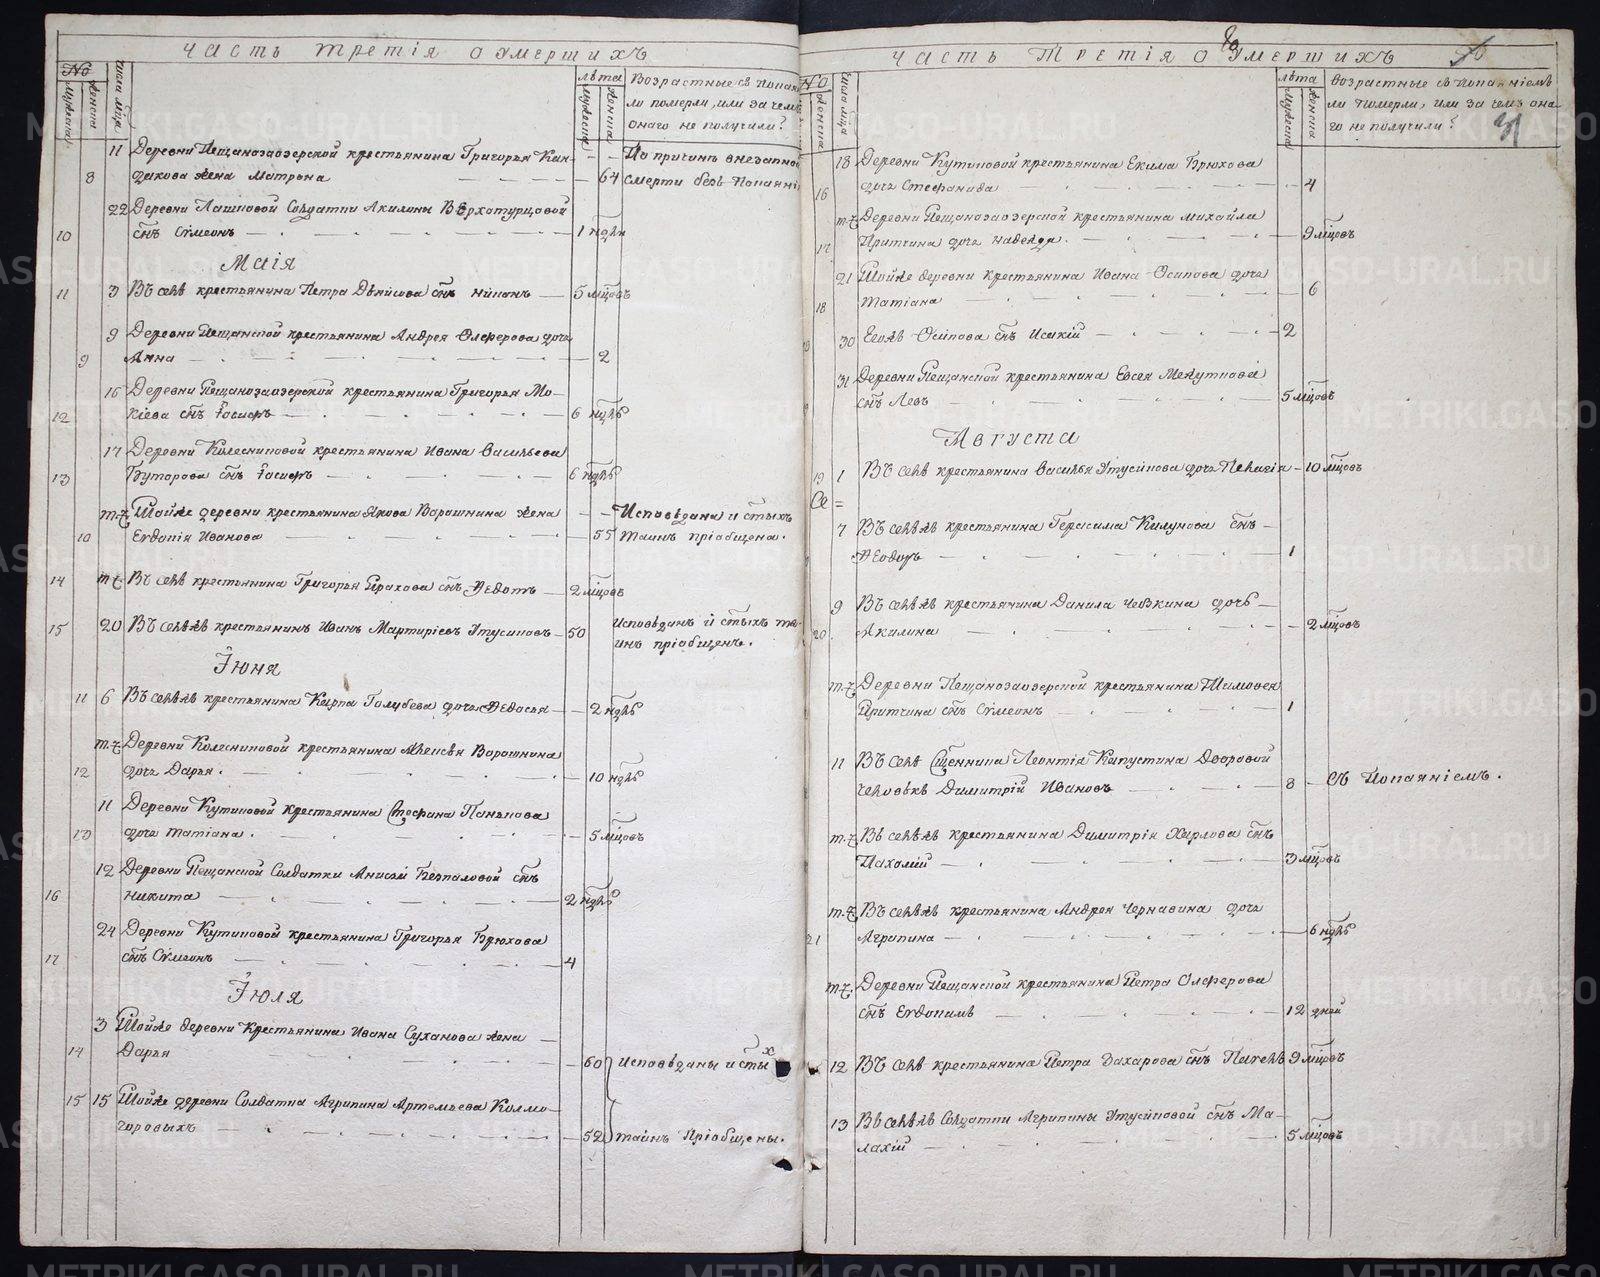 часть третія о умершихъ
№
мужеска
женска
числа мца
лѣта
мужеска
женска
Возрастные съ покая
ли померли, или за чемъ
онаго не получили?
8 11 Деревни Пещанозаозерской крестьянина Григорья Кан-
дакова жена Матрона — 64
По причинѣ внезапной
смерти безъ покаяні
22 Деревни Лашковой Солдатки Акилины Верхотурцовой
10 снъ Сѵмеонъ — 1 ндли
Маія
11 3 Въ селѣ крестьянина Петра Денисова снъ Никонъ — 5 мцовъ
9 Деревни Пещанской крестьянина Андрея Олеферова дочь
9 Анна — 2
16 Деревни Пещанозаозерской крестьянина Григорья Мо-
12 кіева снъ Іосифъ — 6 ндль
17 Деревни Колесниковой крестьянина Ивана Васильева
13 Буторова снъ Іосифъ — 6 ндль
т.ж Тойже деревни крестьянина Якова Ворошнина жена
10 Евдокія Иванова — 55
Исповѣдана и стыхъ
таинъ пріобщена.
14 т.ж Въ селѣ крестьянина Григорья Плохова снъ Ѳедотъ — 2 мцовъ
15 20 Въ селѣ крестьянинъ Иванъ Мартиріевъ Утусиковъ — 50
исповѣданъ и стыхъ та-
инъ пріобщенъ.
Іюня
11 6 Въ селѣ крестьянина Карпа Голубева дочь Ѳедосья — 2 ндль
т.ж Деревни Колесниковой крестьянина Алексѣя Ворошнина
12 дочь Дарья. — 10 ндль
11 Деревни Кутиковой крестьянина Стефана Панькова
13 дочь Татіана. — 5 мцовъ
12 Деревни Пещанской Солдатки Анисьи Безпаловой снъ
16 Никита — 2 ндль
24 Деревни Кутиковой крестьянина Григорья Брюхова
17 снъ Сѵмеонъ — 4
Іюля
3 Тойже деревни крестьянина Ивана Суханова жена
14 Дарья — 60
Исповѣданы и стых
15 15 Тойже деревни Солдатка Агрипина Артемьева Колмо-
горовыхъ — 52
таинъ пріобщены.
часть третія о умершихъ
№
женска
числа мца
лѣта
мужеска
женска
Возрастные съ покаяніемъ
ли померли, или за чемъ она-
го не получили?
18 Деревни Кутиковой крестьянина Екима Брюхова
16 дочь Стефанида — 4
т.ж Деревни Пещанозаозерской крестьянина Михайла
17 Притчина дочь Надежда. — 9 мцовъ
21 Тойже деревни крестьянина Ивана Осипова дочь
18 Татіана — 6
30 Егожъ Осипова снъ Исакій — 2
31 Деревни Пещанской крестьянина Евсея Межуткова
снъ Левъ — 5 мцовъ
Августа
19 1 Въ селѣ крестьянина Василья Утусикова дочь Пелагія — 10 мцовъ
7 Въ селѣ крестьянина Герасима Килунова снъ —
Ѳеодоръ — 1
9 Въ селѣ крестьянина Данила Чевкина дочь —
20 Акилина — 2 мцовъ
т.ж Деревни Пещанозаозерской крестьянина Тимофея
Притчина снъ Сѵмеонъ — 1
11 Въ селѣ Священника Леонтія Капустина Дворовой
человѣкъ Димитрій Ивановъ — 8 — съ Покаяніемъ.
т.ж Въ селѣ крестьянина Димитрія Жирлова снъ
Пахомій — 3 мцовъ
т.ж Въ селѣ крестьянина Андрея Чернавина дочь
21 Агрипина — 6 ндль
т.ж Деревни Пещанской крестьянина Петра Олеферова
снъ Евдокимъ — 12 дней
12 Въ селѣ крестьянина Петра Захарова снъ Павелъ 9 мцовъ
13 Въ селѣ Солдатки Агрипины Утусиковой снъ Ма-
лахій — 5 мцовъ
METRIKI.GASO-URAL.RU